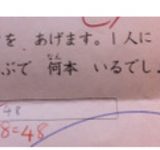 を あげます。1人に
ぶで 何本 いるでしょ
なん
48
8=48